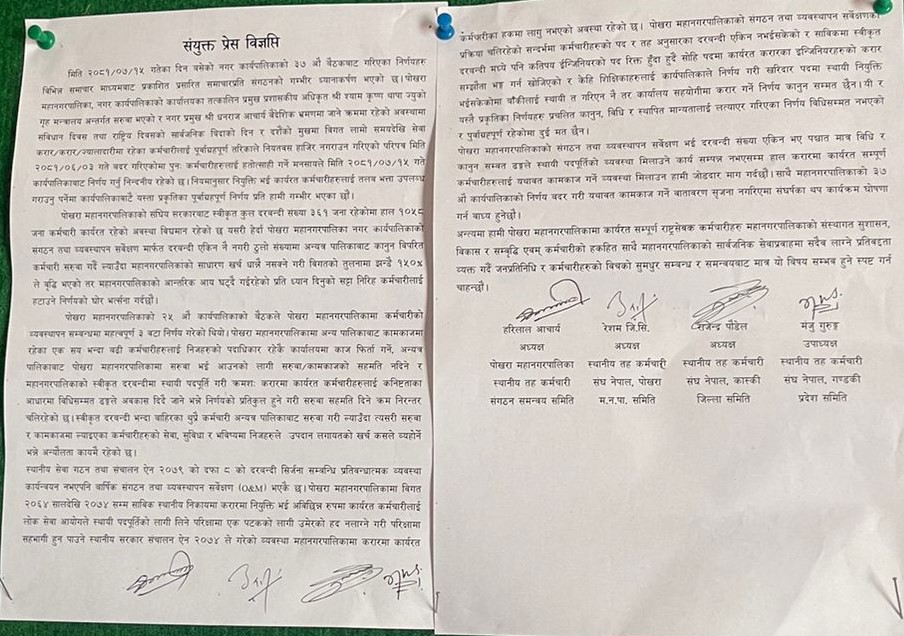 संयुक्त प्रेस विज्ञप्ति
मिति २०८१/०७/१५ गतेका दिन बसेको नगर कार्यपालिकाको ३७ औं बैठकबाट गरिएका निर्णयहरु
विभिन्न समाचार माध्यमबाट प्रकाशित प्रसारित समाचारप्रति संगठनको गम्भीर ध्यानाकर्षण भएको छ।पोखरा
महानगरपालिका, नगर कार्यपालिकाको कार्यालयका तत्कालिन प्रमुख प्रशासकीय अधिकृत श्री श्याम कृष्ण थापा ज्युको
गृह मन्त्रालय अन्तर्गत सरुवा भएको र नगर प्रमुख श्री धनराज आचार्य बैदेशिक भ्रमणमा जाने क्रममा रहेको अवस्थामा
संबिधान दिवस तथा राष्ट्रिय दिवसको सार्वजनिक बिदाको दिन र दशैंको मुखमा विगत लामो समयदेखि सेवा
करार/करार/ज्यालादारीमा रहेका कर्मचारीलाई पुर्वाग्रहपूर्ण तरिकाले नियतबस हाजिर नगराउन गरिएको परिपत्र मिति
२०८१/०६/०३ गते बदर गरिएकोमा पुनः कर्मचारीहरुलाई हतोत्साही गर्ने मनसायले मिति २०८१/०७/१५ गते
कार्यपालिकाबाट निर्णय गर्नु निन्दनीय रहेको छ।नियमानुसार नियुक्ति भई कार्यरत कर्मचारीहरुलाई तलब भत्ता उपलब्ध
गराउनु पर्नेमा कार्यपालिकाबाटै यस्ता प्रकृतिका पूर्वाग्रहपूर्ण निर्णय प्रति हामी गम्भीर भएका छौं।
पोखरा महानगरपालिकाको संघिय सरकारबाट स्वीकृत कुल दरबन्दी संख्या ३६१ जना रहेकोमा हाल १०५८
जना कर्मचारी कार्यरत रहेको अवस्था बिद्यमान रहेको छ यसरी हेर्दा पोखरा महानगरपालिका नगर कार्यपालिकाको
संगठन तथा व्यवस्थापन सर्वेक्षण मार्फत दरबन्दी एकिन नै नगरी ठुलो संख्यामा अन्यत्र पालिकाबाट कानुन बिपरित
कर्मचारी सरुवा गर्दै ल्याउँदा महानगरपालिकाको साधारण खर्च धान्नै नसक्ने गरी बिगतको तुलनामा झन्डै १५०%
ले बृद्धि भएको तर महानगरपालिकाको आन्तरिक आय घट्दै गईरहेको प्रति ध्यान दिनुको सट्टा निरिह कर्मचारीलाई
हटाउने निर्णयको घोर भर्त्सना गर्दछौं।
पोखरा महानगरपालिकाको २५ औं कार्यपालिकाको बैठकले पोखरा महानगरपालिकामा कर्मचारीको
व्यवस्थापन सम्वन्धमा महत्वपूर्ण ३ बटा निर्णय गरेको थियो।पोखरा महानगरपालिकामा अन्य पालिकाबाट कामकाजमा
रहेका एक सय भन्दा बढी कर्मचारीहरुलाई निजहरुको पदाधिकार रहेकै कार्यालयमा काज फिर्ता गर्ने, अन्यत्र
पालिकाबाट पोखरा महानगरपालिकामा सरुवा भई आउनको लागी सरुवा/कामकाजको सहमति नदिने र
महानगरपालिकाको स्वीकृत दरबन्दीमा स्थायी पदपूर्ति गरी क्रमशः करारमा कार्यरत कर्मचारीहरुलाई कनिष्ठताका
आधारमा बिधिसम्मत ढङ्गले अबकास दिदैं जाने भन्ने निर्णयको प्रतिकुल हुने गरी सरुवा सहमति दिने क्रम निरन्तर
चलिरहेको छ।स्वीकृत दरबन्दी भन्दा बाहिरका थुप्रै कर्मचारी अन्यत्र पालिकाबाट सरुवा गरी ल्याउँदा त्यसरी सरुवा
र कामकाजमा ल्याइएका कर्मचारीहरुको सेवा, सुविधा र भबिष्यमा निजहरुले उपदान लगायतको खर्च कसले व्यहोर्ने
भन्ने अन्यौलता कायमै रहेको छ।
स्थानीय सेवा गठन तथा संचालन ऐन २०७९ को दफा ८ को दरबन्दी सिर्जना सम्बन्धि प्रतिबन्धात्मक व्यवस्था
कार्यन्वयन नभएपनि बार्षिक संगठन तथा व्यवस्थापन सर्वेक्षण (O&M) भएकै छ।पोखरा महानगरपालिकामा बिगत
२०६४ सालदेखि २०७४ सम्म साबिक स्थानीय निकायमा करारमा नियुक्ति भई अबिछिन्न रुपमा कार्यरत कर्मचारीलाई
लोक सेवा आयोगले स्थायी पदपूर्तिको लागी लिने परिक्षामा एक पटकको लागी उमेरको हद नलाग्ने गरी परिक्षामा
सहभागी हुन पाउने स्थानीय सरकार संचालन ऐन २०७४ ले गरेको व्यवस्था महानगरपालिकामा करारमा कार्यरत
कर्मचारीका हकमा लागु नभएको अवस्था रहेको छ। पोखरा महानगरपालिकाको संगठन तथा व्यवस्थापन सर्वेक्षणको
प्रक्रिया चलिरहेको सन्दर्भमा कर्मचारीहरुको पद र तह अनुसारका दरवन्दी एकिन नभईसकेको र साबिकमा स्वीकृत
दरवन्दी मध्ये पनि कतिपय ईन्जिनियरको पद रिक्त हुँदा हुदै सोहि पदमा कार्यरत करारका इन्जिनियरहरुको करार
सम्झौता भङ्ग गर्न खोजिएको र केहि शिक्षिकाहरुलाई कार्यपालिकाले निर्णय गरी खरिदार पदमा स्थायी नियुक्ति
भईसकेकोमा बाँकीलाई स्थायी त गरिएन नै तर कार्यालय सहयोगीमा करार गर्ने निर्णय कानुन सम्मत छैन। यी र
यस्तै प्रकृतिका निर्णयहरु प्रचलित कानुन, बिधि र स्थापित मान्यतालाई लत्याएर गरिएका निर्णय बिधिसम्मत नभएको
र पुर्वाग्रहपूर्ण रहेकोमा दुई मत छैन।
पोखरा महानगरपालिकाको संगठन तथा व्यवस्थापन सर्वेक्षण भई दरबन्दी संख्या एकिन भए पछात मात्र बिधि र
कानुन सम्वत ढङ्गले स्थायी पदपूर्तिको व्यवस्था मिलाउने कार्य सम्पन्न नभएसम्म हाल करारमा कार्यरत सम्पूर्ण
कर्मचारीहरुलाई यथावत कामकाज गर्ने व्यवस्था मिलाउन हामी जोडदार माग गर्दछौं। साथै महानगरपालिकाको ३७
औं कार्यपालिकाको निर्णय बदर गरी यथावत कामकाज गर्ने बातावरण सृजना नगरिएमा संघर्षका थप कार्यक्रम घोषणा
गर्न बाध्य हुनेछौं।
अन्त्यमा हामी पोखरा महानगरपालिकामा कार्यरत सम्पूर्ण राष्ट्रसेवक कर्मचारीहरु महानगरपालिकाको संस्थागत सुशासन,
बिकास र समृद्धि एवम् कर्मचारीको हकहित साथै महानगरपालिकाको सार्वजनिक सेवाप्रवाहमा सदैब लाग्ने प्रतिबद्दता
व्यक्त गर्दै जनप्रतिनिधि र कर्मचारीहरुको बिचको सुमधुर सम्बन्ध र समन्वयबाट मात्र यो विषय सम्भब हुने स्पष्ट गर्न
चाहन्छौं।
हरिलाल आचार्य रेशम जि.सि. राजेन्द्र पौडेल मंजु गुरुङ्ग
अध्यक्ष अध्यक्ष अध्यक्ष उपाध्यक्ष
पोखरा महानगरपालिका स्थानीय तह कर्मचारी स्थानीय तह कर्मचारी स्थानीय तह कर्मचारी
स्थानीय तह कर्मचारी संघ नेपाल, पोखरा संघ नेपाल, कास्की संघ नेपाल, गण्डकी
संगठन समन्वय समिति म.न.पा. समिति जिल्ला समिति प्रदेश समिति